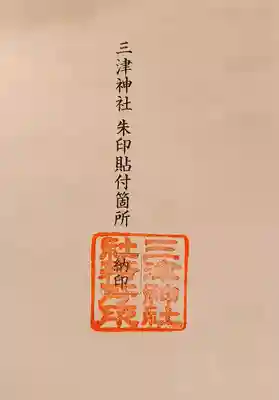 三津神社 朱印貼付箇所
納印
三津神社